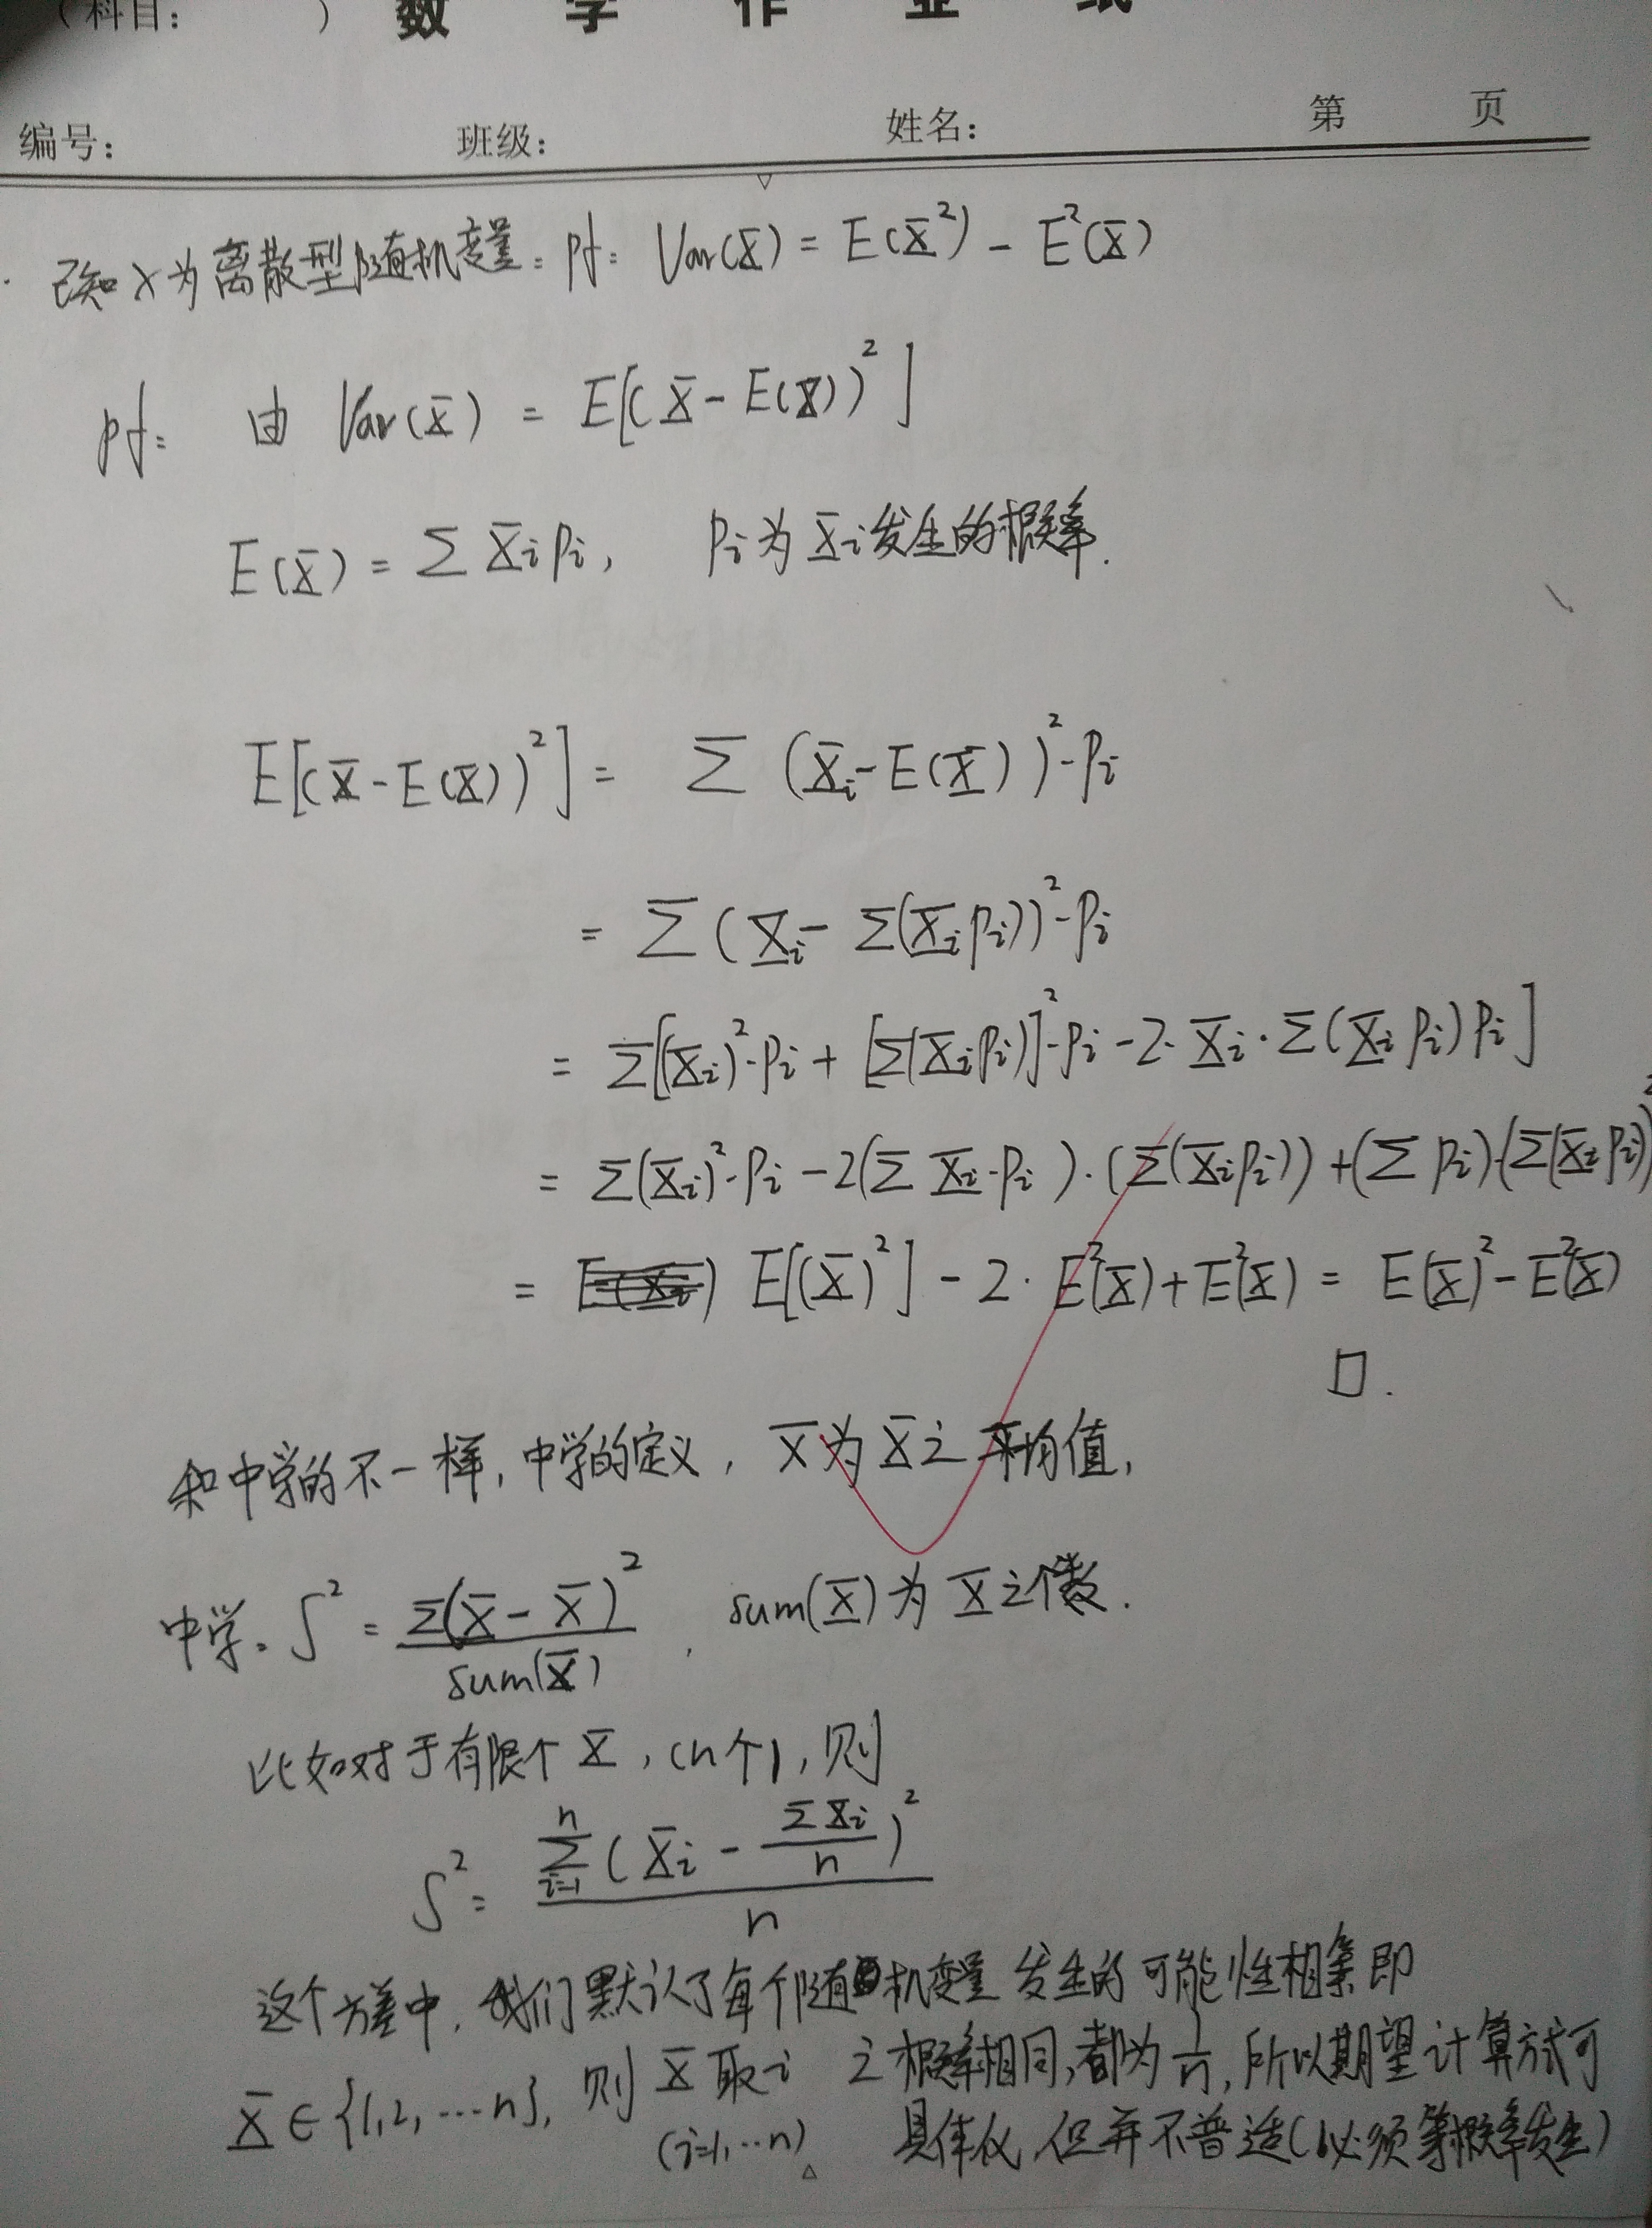 (科目: ) 数学作业纸
编号: 班级: 姓名: 第 页
已知X为离散型随机变量. pf: Var(X) = E(X²) - E²(X)
pf: 由 Var(X) = E[(X - E(X))²]
E(X) = Σ Xi Pi, Pi为Xi发生的概率.
E[(X - E(X))²] = Σ (Xi - E(X))²·Pi
= Σ (Xi - Σ(Xi Pi))²·Pi
= Σ[(Xi)²·Pi + [Σ(Xi Pi)]²·Pi - 2·Xi·Σ(Xi Pi) Pi]
= Σ(Xi)²·Pi - 2(Σ Xi·Pi)·(Σ(Xi Pi)) + (Σ Pi)·(Σ(Xi Pi))²
= E[(X)²] - 2·E²(X) + E²(X) = E(X)² - E²(X)
□.
和中学的不一样, 中学的定义, X̄为X之平均值,
中学. S² = Σ(X - X̄)² / sum(X), sum(X)为X之个数.
比如对于有限个X, (n个), 则
S² = Σ_{i=1}^{n} (Xi - ΣXi/n)² / n
这个方差中, 我们默认了每个随机变量发生的可能性相等即
X∈{1,2,…n}, 则X取i之概率相同, 都为1/n, 所以期望计算方式可
(i=1,…n) 具体化, 但并不普适(必须等概率发生)